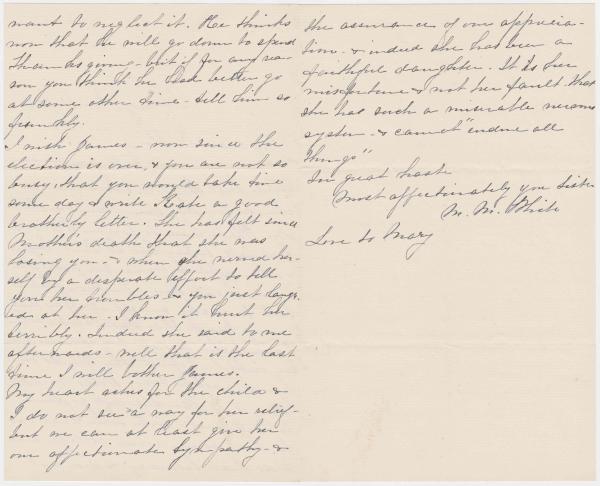 want to neglect it. He thinks
now that he will go down to spend
Thanksgiving - but if for any rea-
son you think he had better go
at some other time - tell him so
frankly.
I wish James - now since the
election is over, & you are not so
busy, that you would take time
some day & write Kate a good
brotherly letter. She has felt since
Mother's death that she was
losing you - & when she nerved her-
self by a desperate effort to tell
you her troubles - & you just laugh
ed at her - I know it hurt her
terribly. Indeed she said to me
afterwards - well that is the last
time I will bother James.
My heart aches for the child &
I do not see a way for her relief -
but we can at least give her
our affectionate sympathy - &
the assurance of our apprecia-
tion - & indeed she has been a
faithful daughter. It is her
misfortune & not her fault that
she has such a miserable nervous
system - & cannot "endure all
things"
In great haste
Most affectionately your Sister
M. M. White
Love to Mary